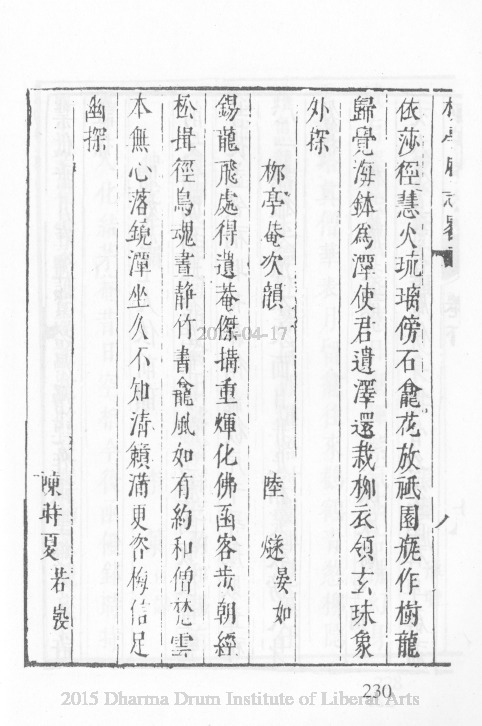 依莎徑慧火琉璃傍石龕花放祗園旋作樹龍
歸覺海鉢為潭使君遺澤還栽柳衣領玄珠象
外探
柳亭菴次韻 陸燧晏如
錫龍飛處得遺菴傑搆重輝化佛函客步朝經
松揖徑鳥魂晝静竹書龕風如有約和僧梵雲
本無心落鏡潭坐久不知清籟滿更咨梅信足
幽探
陳蒔夏若
八
230
2015-04-17
2015 Dharma Drum Institute of Liberal Arts